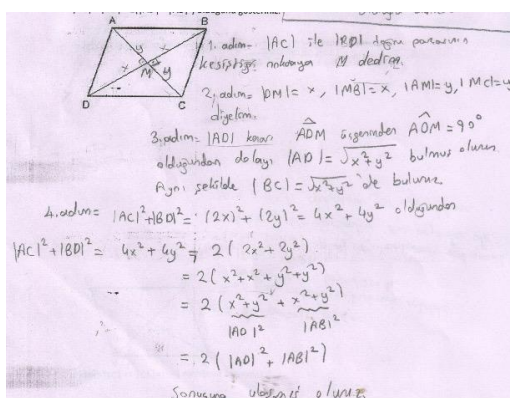 A B
y x
x M y
D C
1. adım= |AC| ile |BD| doğru parasının
kesiştiği noktaya M dedim.
2. adım= |DM| = x, |MB| = x, |AM| = y, |MC| = y
diyelim.
3. adım= |AD| kenarı ADM üçgeninden AOM = 90°
olduğundan dolayı |AD| = √x²+y² bulmuş oluruz
Aynı şekilde |BC| = √x²+y² 'de buluruz
4. adım= |AC|²+|BD|² = (2x)² + (2y)² = 4x² + 4y² olduğundan
|AC|² + |BD|² = 4x² + 4y² = 2(2x²+2y²)
= 2(x²+x²+y²+y²)
= 2(x²+y² + x²+y²)
|AD|² |AB|²
= 2(|AD|² + |AB|²)
sonucuna ulaşmış oluruz.